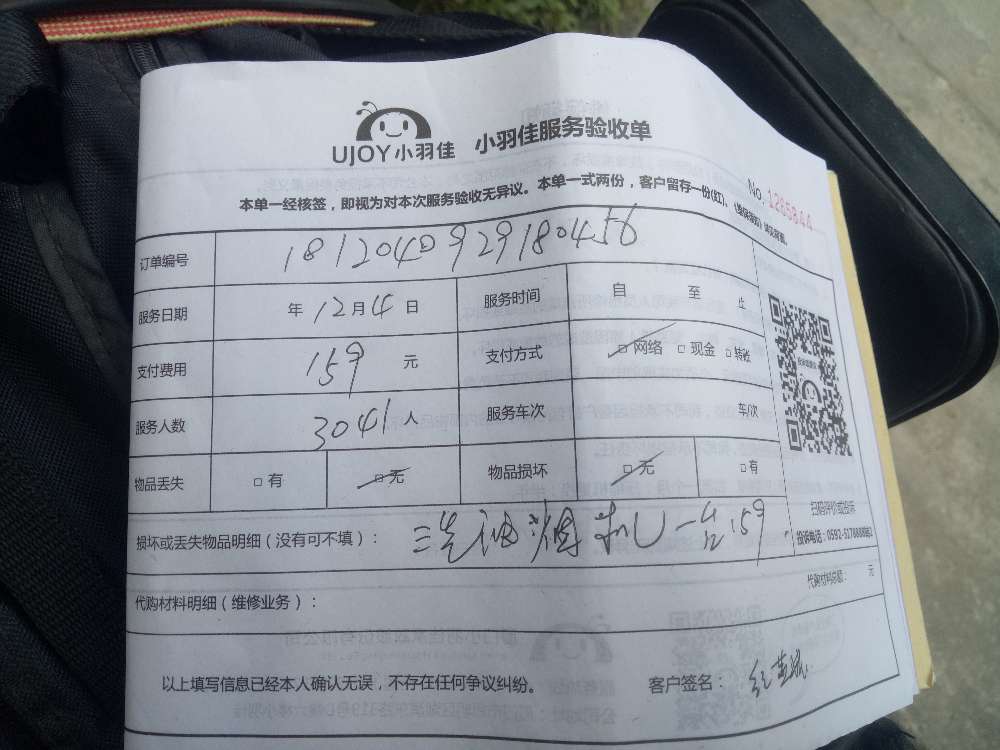 UJOY小羽佳 小羽佳服务验收单
No. 1265844
本单一经核签，即视为对本次服务验收无异议。本单一式两份，客户留存一份(红)、
订单编号 1812040929180456
服务日期 年12月4日 服务时间 自 至 止
支付费用 159 元 支付方式 □网络 □现金 □转账
服务人数 3041人 服务车次 车/次
物品丢失 □有 □无 物品损坏 □无 □有
扫码评价或投诉
损坏或丢失物品明细（没有可不填）： 洗油烟机一台159
代购材料明细（维修业务）： 代购材料总额： 元
以上填写信息已经本人确认无误，不存在任何争议纠纷。 客户签名：